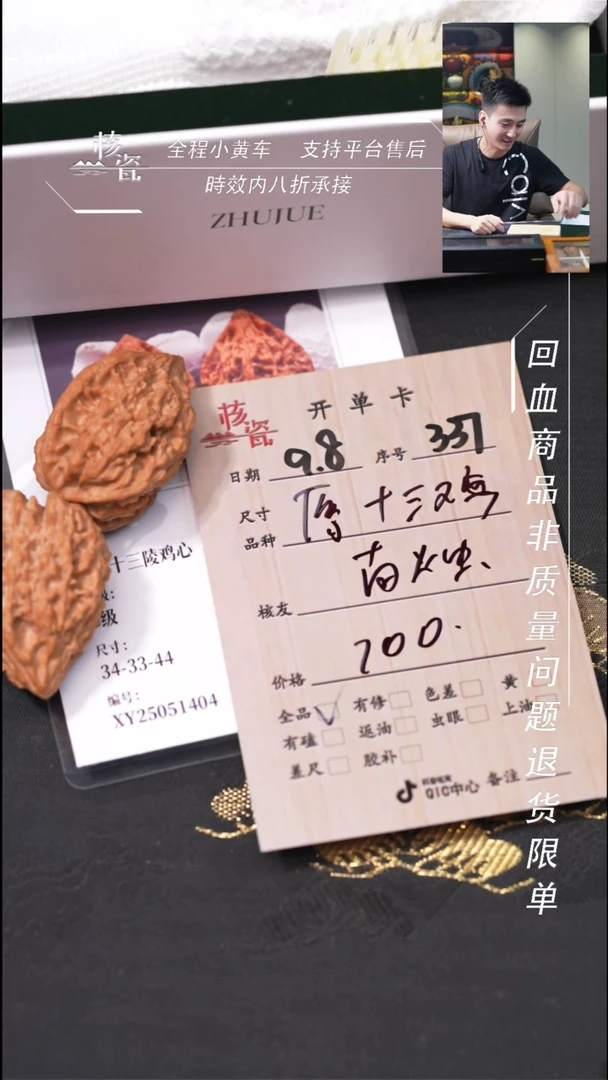 核瓷
全程小黄车 支持平台售后
時效内八折承接
ZHUJUE
回血商品非质量问题退货限单
十三陵鸡心
级
尺寸:
34-33-44
编号:
XY25051404
核瓷 开单卡
日期 9.8 序号 337
尺寸
品种 十三
核友
价格 700.
全品 有修 色差 黄
有磕 返油 虫眼 上油
差尺 胶补
QIC中心 备注